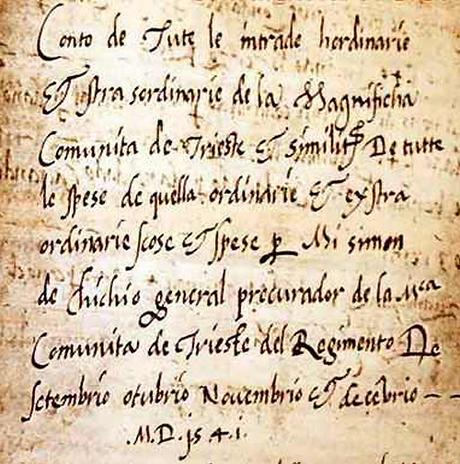 Conto de Tute le intrade hordinarie
Et stra sordinarie de la Magnificha
Comunita de Trieste Et similit De tutte
le spese de quella ordinarie Et exstra
ordinarie scose Et spese p Mi simon
de general procurador de la Mca
Comunita de Trieste del Regimento De
setembrio otubrio Novembrio Et decebrio
.M.D.1541.